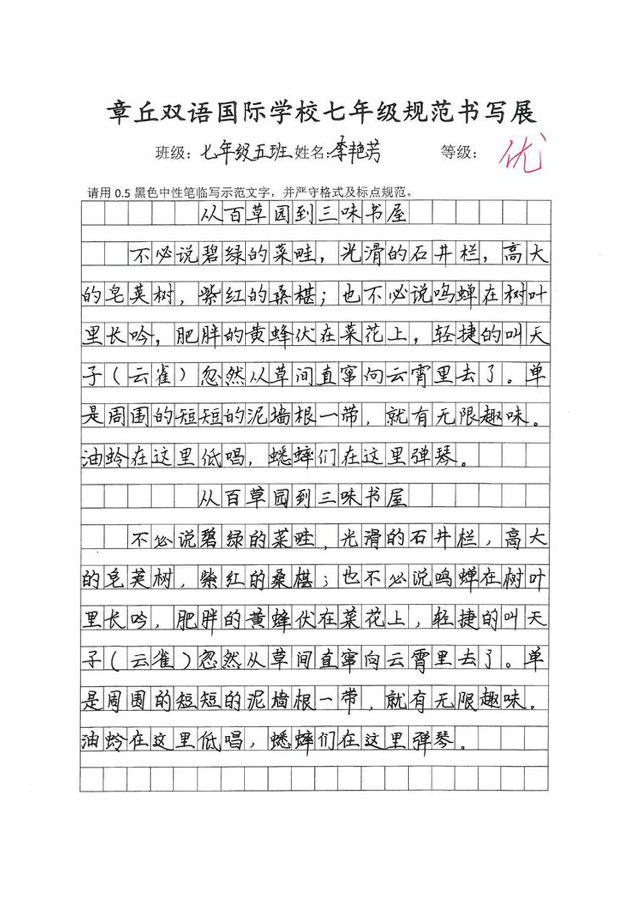 章丘双语国际学校七年级规范书写展
班级：七年级五班 姓名：李艳芳 等级：优
请用 0.5 黑色中性笔临写示范文字，并严守格式及标点规范。
从百草园到三味书屋
不必说碧绿的菜畦，光滑的石井栏，高大
的皂荚树，紫红的桑椹；也不必说鸣蝉在树叶
里长吟，肥胖的黄蜂伏在菜花上，轻捷的叫天
子（云雀）忽然从草间直窜向云霄里去了。单
是周围的短短的泥墙根一带，就有无限趣味。
油蛉在这里低唱，蟋蟀们在这里弹琴。
从百草园到三味书屋
不必说碧绿的菜畦，光滑的石井栏，高大
的皂荚树，紫红的桑椹；也不必说鸣蝉在树叶
里长吟，肥胖的黄蜂伏在菜花上，轻捷的叫天
子（云雀）忽然从草间直窜向云霄里去了。单
是周围的短短的泥墙根一带，就有无限趣味。
油蛉在这里低唱，蟋蟀们在这里弹琴。